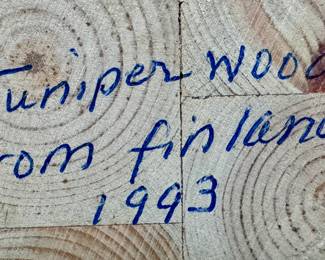 Juniper Wood
from finland
1993